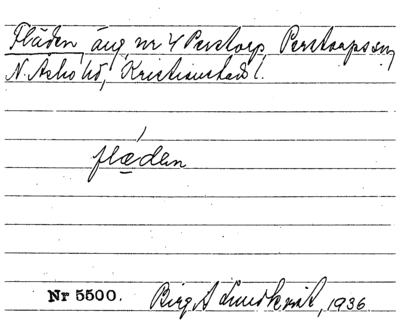 Fläden, äng, nr 4 Perstorp, Perstorps sn,
N. Åsbo hd, Kristianstads l.
flæden
Nr 5500. Birgit Lundkvist, 1936